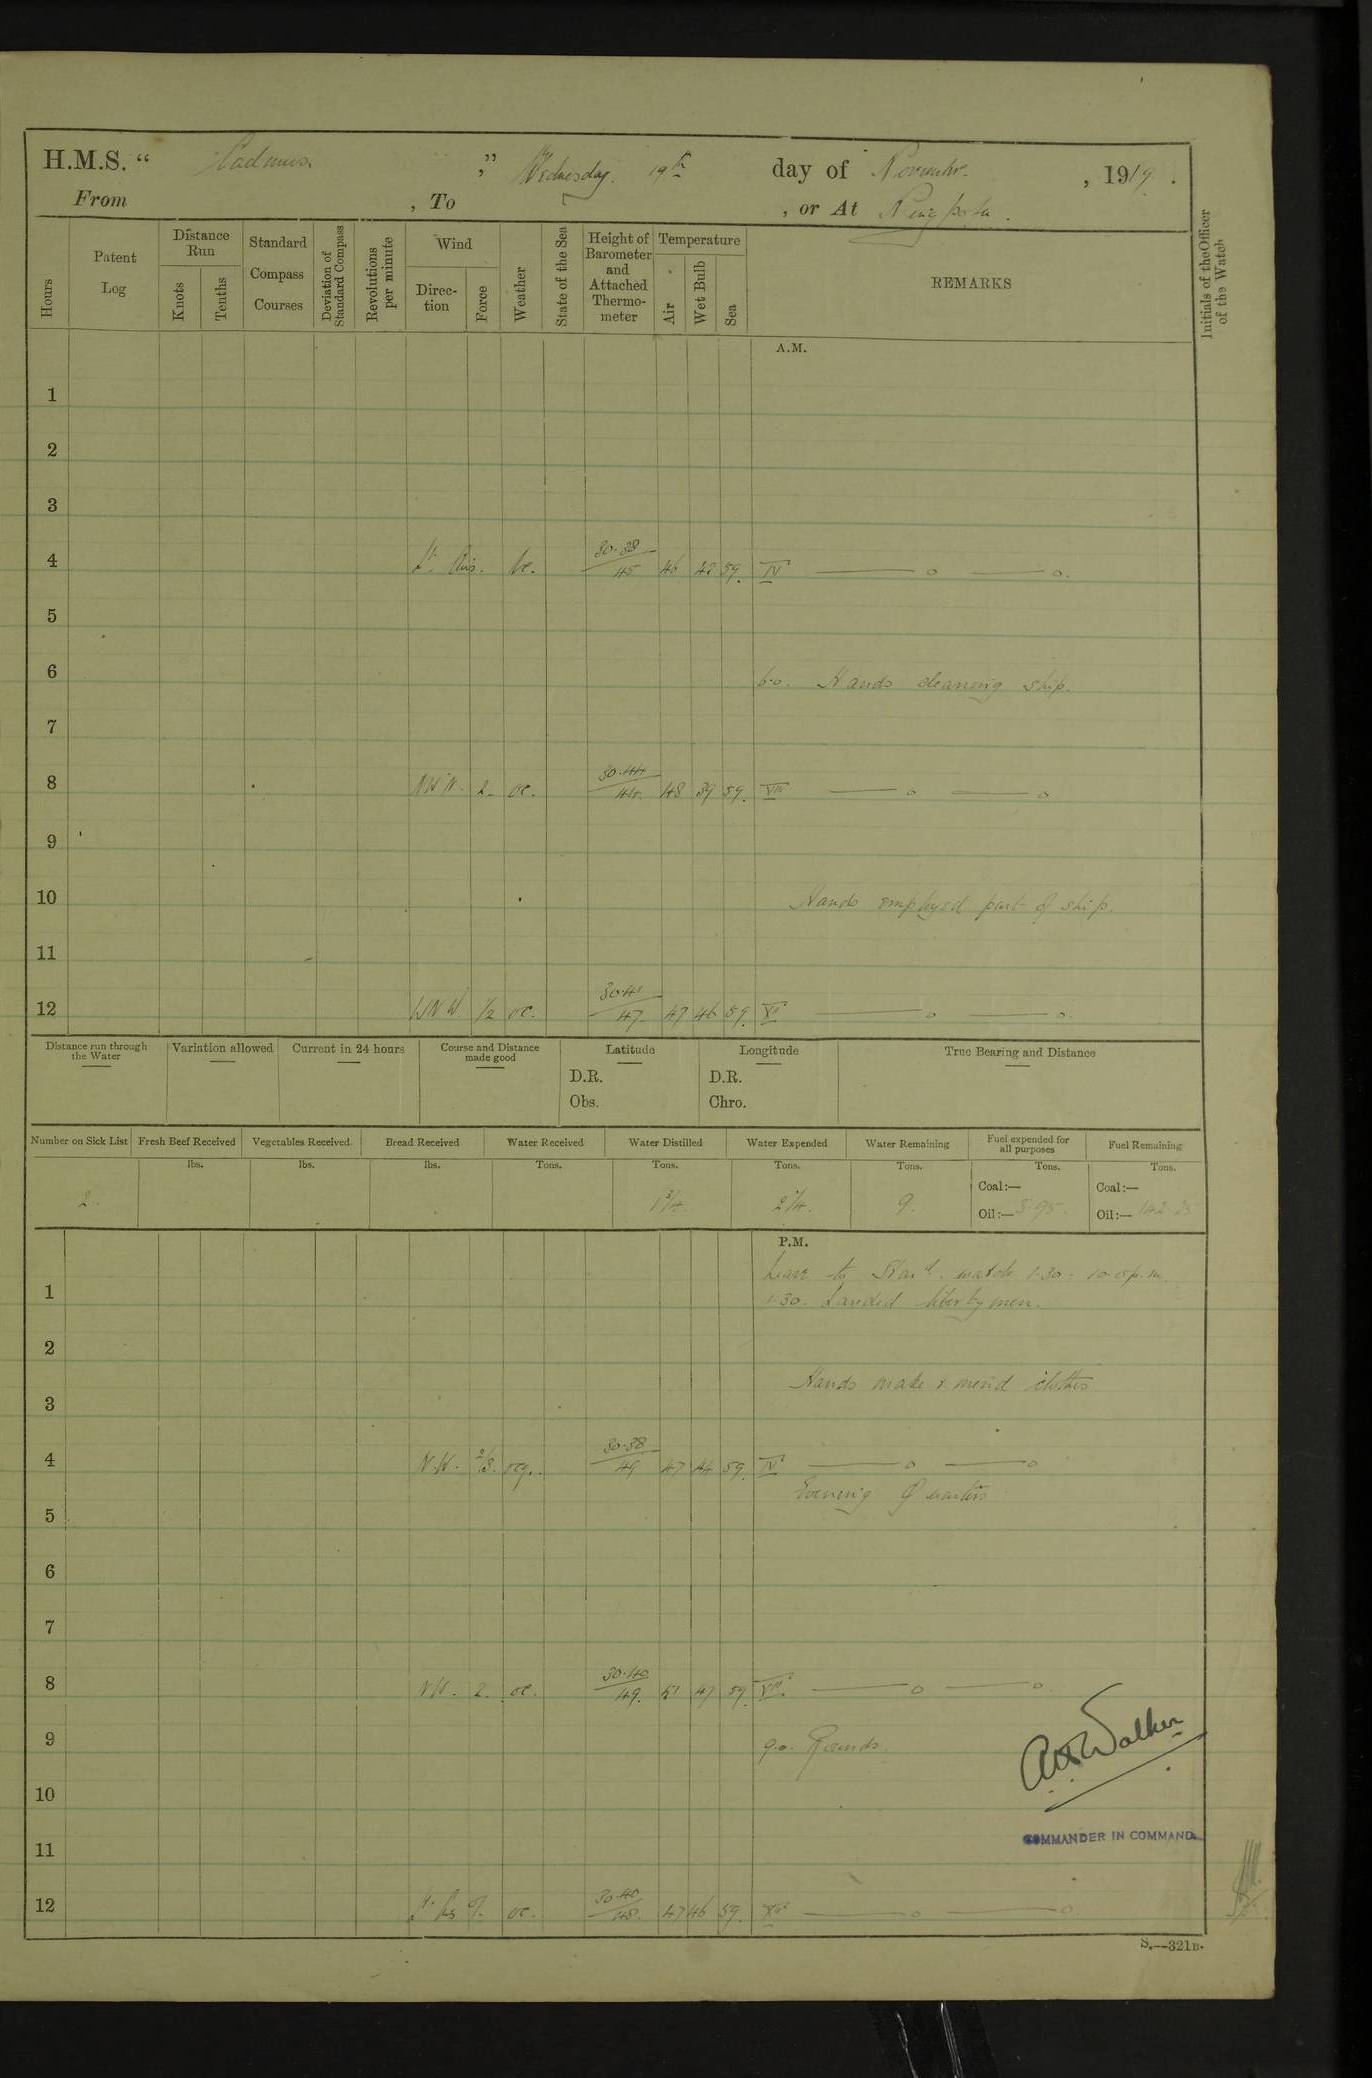 H.M.S. “ Cadmus. ” , Wednesday 19th day of November , 1919 .
From , To , or At
Hours
Patent Log
Distance Run
Knots
Tenths
Standard Compass Courses
Deviation of Standard Compass
Revolutions per minute
Wind
Direction
Force
Weather
State of the Sea
Height of Barometer and Attached Thermometer
Temperature
Air
Wet Bulb
Sea
REMARKS
Initials of the Officer of the Watch
A.M.
1
2
3
4 Lt. Airs. bc. 30.38 45 46 42 59. IV
5
6 6.0. Hands cleaning ship.
7
8 NW'N. 2. oc. 30.44 44. 48 39 59. VIII
9
10 Hands employed part of ship.
11
12 WNW. 1/2 oc. 30.41 47. 47 46 59. XII
Distance run through the Water
Variation allowed
Current in 24 hours
Course and Distance made good
Latitude
D.R.
Obs.
Longitude
D.R.
Chro.
True Bearing and Distance
Number on Sick List Fresh Beef Received Vegetables Received. Bread Received Water Received Water Distilled Water Expended Water Remaining Fuel expended for all purposes Fuel Remaining
lbs. lbs. lbs. Tons. Tons. Tons. Tons. Tons. Tons.
Coal:— Coal:—
2. 1 3/4. 2 1/4. 9. Oil:— 3.95. Oil:— 142.25
P.M.
Leave to Star'd. watch 1.30 - 10.0 p.m.
1 1.30. Landed liberty men.
2
Hands make & mend clothes
3
4 N.W. 2/3. ocq. 30.38 49 47 44 59. IV
Evening Quarters
5
6
7
8 NW. 2. oc. 30.40 49. 51 47 59. VIII
9 9.0. Rounds.
10
Walker
COMMANDER IN COMMAND.
11
12 Lt. oc. 30.40 48. 47 46 59. XII
S.—321B.